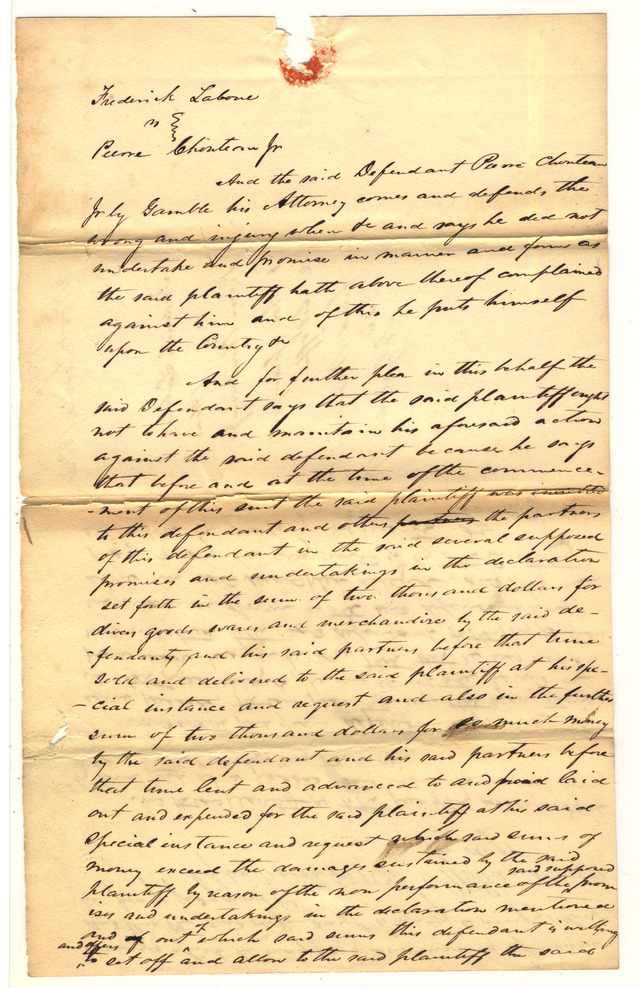 Frederick Laboue
vs
Pierre Chouteau Jr
And the said Defendant Pierre Chouteau
Jr by Gamble his Attorney comes and defends the
wrong and injury when &c and says he did not
undertake and promise in manner and form as
the said plaintiff hath above thereof complained
against him and of this he puts himself
upon the Country &c
And for further plea in this behalf the
said Defendant says that the said plaintiff ought
not to have and maintain his aforesaid action
against the said defendant because he says
that before and at the time of the commence-
-ment of this suit the said plaintiff was indebted
to this defendant and others partners the partners
of this defendant in the said several supposed
promises and undertakings in the declaration
set forth in the sum of two thousand dollars for
divers goods wares and merchandize by the said de-
-fendants and his said partners before that time
sold and delivered to the said plaintiff at his spe-
-cial instance and request and also in the further
sum of two thousand dollars for so much money
by the said defendant and his said partners before
that time lent and advanced to and paid laid
out and expended for the said plaintiff at his said
special instance and request which said sums of
money exceed the damages sustained by the said
plaintiff by reason of the non performance of the said supposed prom
ises and undertakings in the declaration mentioned
and of out which said sums this defendant is willing
and offers to set off and allow to the said plaintiff the said